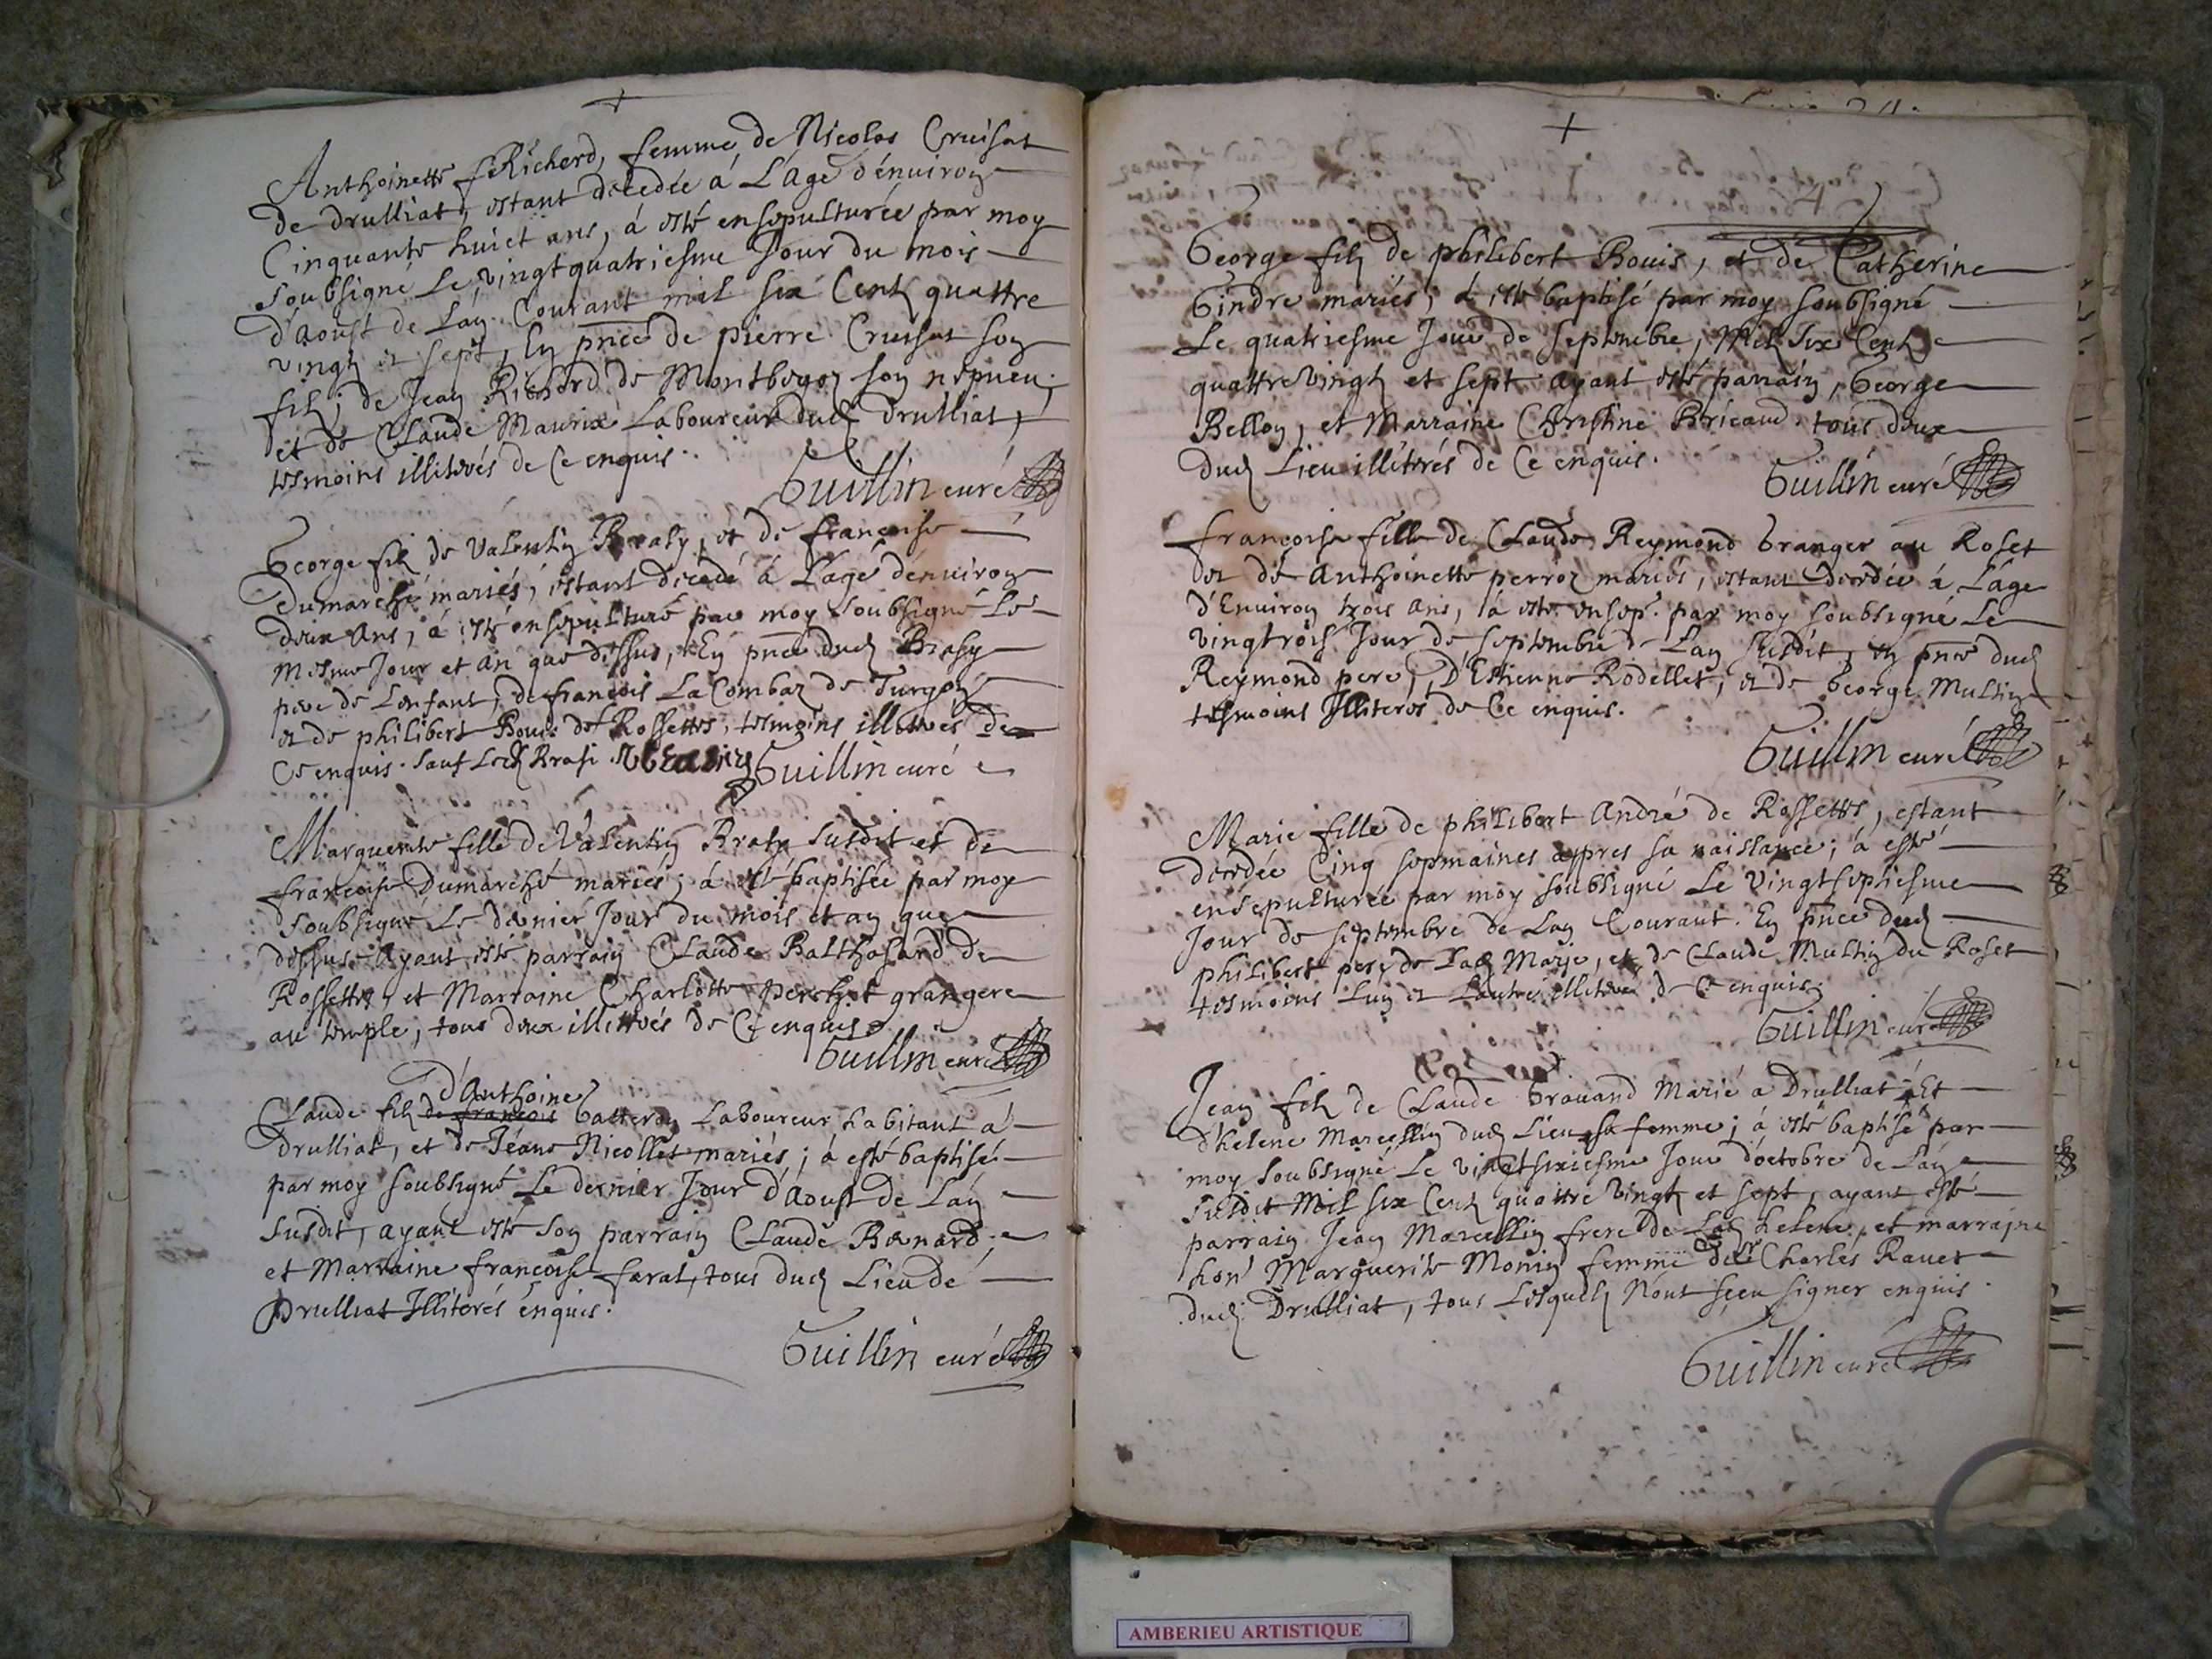 Anthoinette Richard, femme de Nicolas Cruisat
de drulliat, estant décédée á Láge dénuiron
Cinquante huict ans, á esté ensepulturée par moy
soubsigné Le vingt quatriesme Jour du mois
dáoust de Lan Courant mil six Cent quattre
vingt et sept, En pnce de pierre Cruisat son
fils; de Jean Richard de Montbegoz son népueu;
et de Claude Maurix Laboureur dud drulliat,
tesmoins illiterés de Ce enquis.
Guillin curé
George fils de Valentin Brasy, et de francoise
Dumarché mariés, estant décédé á Láge dénuiron
deux Ans, á esté ensepulturé par moy soubsigné Le
mesme Jour et an que dessus, En pnce dud Brasy
pere de Lenfant, de francois LaCombaz de Turgon
et de philibert Bouis de Rossettes, tesmoins illiterés de
Ce enquis. Sauf Led Brasi
Guillin curé
Marguerite fille de Valentin Brasy susdit et de
francoise Dumarché mariés; á esté baptisée par moy
soubsigné Le dernier Jour du mois et an que
dessus. Ayant esté parrain Claude Balthasard de
Rossettes, et Marraine Charlotte Perchet grangere
au temple, tous deux illiterés de Ce enquis
Guillin curé
d'Anthoine
Claude fils de francois Galteron Laboureur habitant á
Drulliat, et de Jéane Nicollet mariés; á esté baptisé
par moy soubsigné Le dernier Jour dÁoust de Lan
susdit, ayant esté son parrain Claude Bernard,
et Marraine francoise farat, tous dud Lieu de
Drulliat Illiterés enquis.
Guillin curé
George fils de philibert Bouis, et de Catherine
Gindre mariés, á esté baptisé par moy soubsigné
Le quatriesme Jour de septembre, Mil Six Cent
quattre vingt et sept ayant esté parrain, George
Belloy, et Marraine Christine Bricaud. tous deux
dud Lieu illiterés de Ce enquis.
Guillin curé
francoise fille de Claude Reymond Granger au Roset
et de Anthoinette perroz mariés, estant decédée á Láge
d'Enuiron trois Ans, á esté ensep. par moy soubsigné Le
vingtrois Jour de septembre de Lan susdit, en pnce dud
Reymond pere, D'Estienne Rodellet, et de George Multin
tesmoins Illiterés de Ce enquis.
Guillin curé
Marie fille de philibert André de Rossettes, estant
decédée Cinq sepmaines áppres sa naissance; á esté
ensepulturée par moy soubsigné Le vingt septiesme
Jour de septembre de Lan Courant. En pnce dud
philibert pere de Lad Marie, et de Claude Multin du Roset
tesmoins Luy et Lautre illiterés de Ce enquis
Guillin curé
Jean fils de Claude Grouand Marié a Drulliat Et
d'helene Marcellin dud Lieu sa femme; á esté baptisé par
moy soubsigné Le vingt sixiesme Jour d'octobre de Lan
susdit Mil six Cent quattre vingt et sept, ayant esté
parrain Jean Marcellin frere de Lad helene, et marraine
hon Marguerite Monin femme de Sr Charles Rauet
dud Drulliat, tous Lesquels N'ont sceu signer enquis.
Guillin curé
AMBERIEU ARTISTIQUE